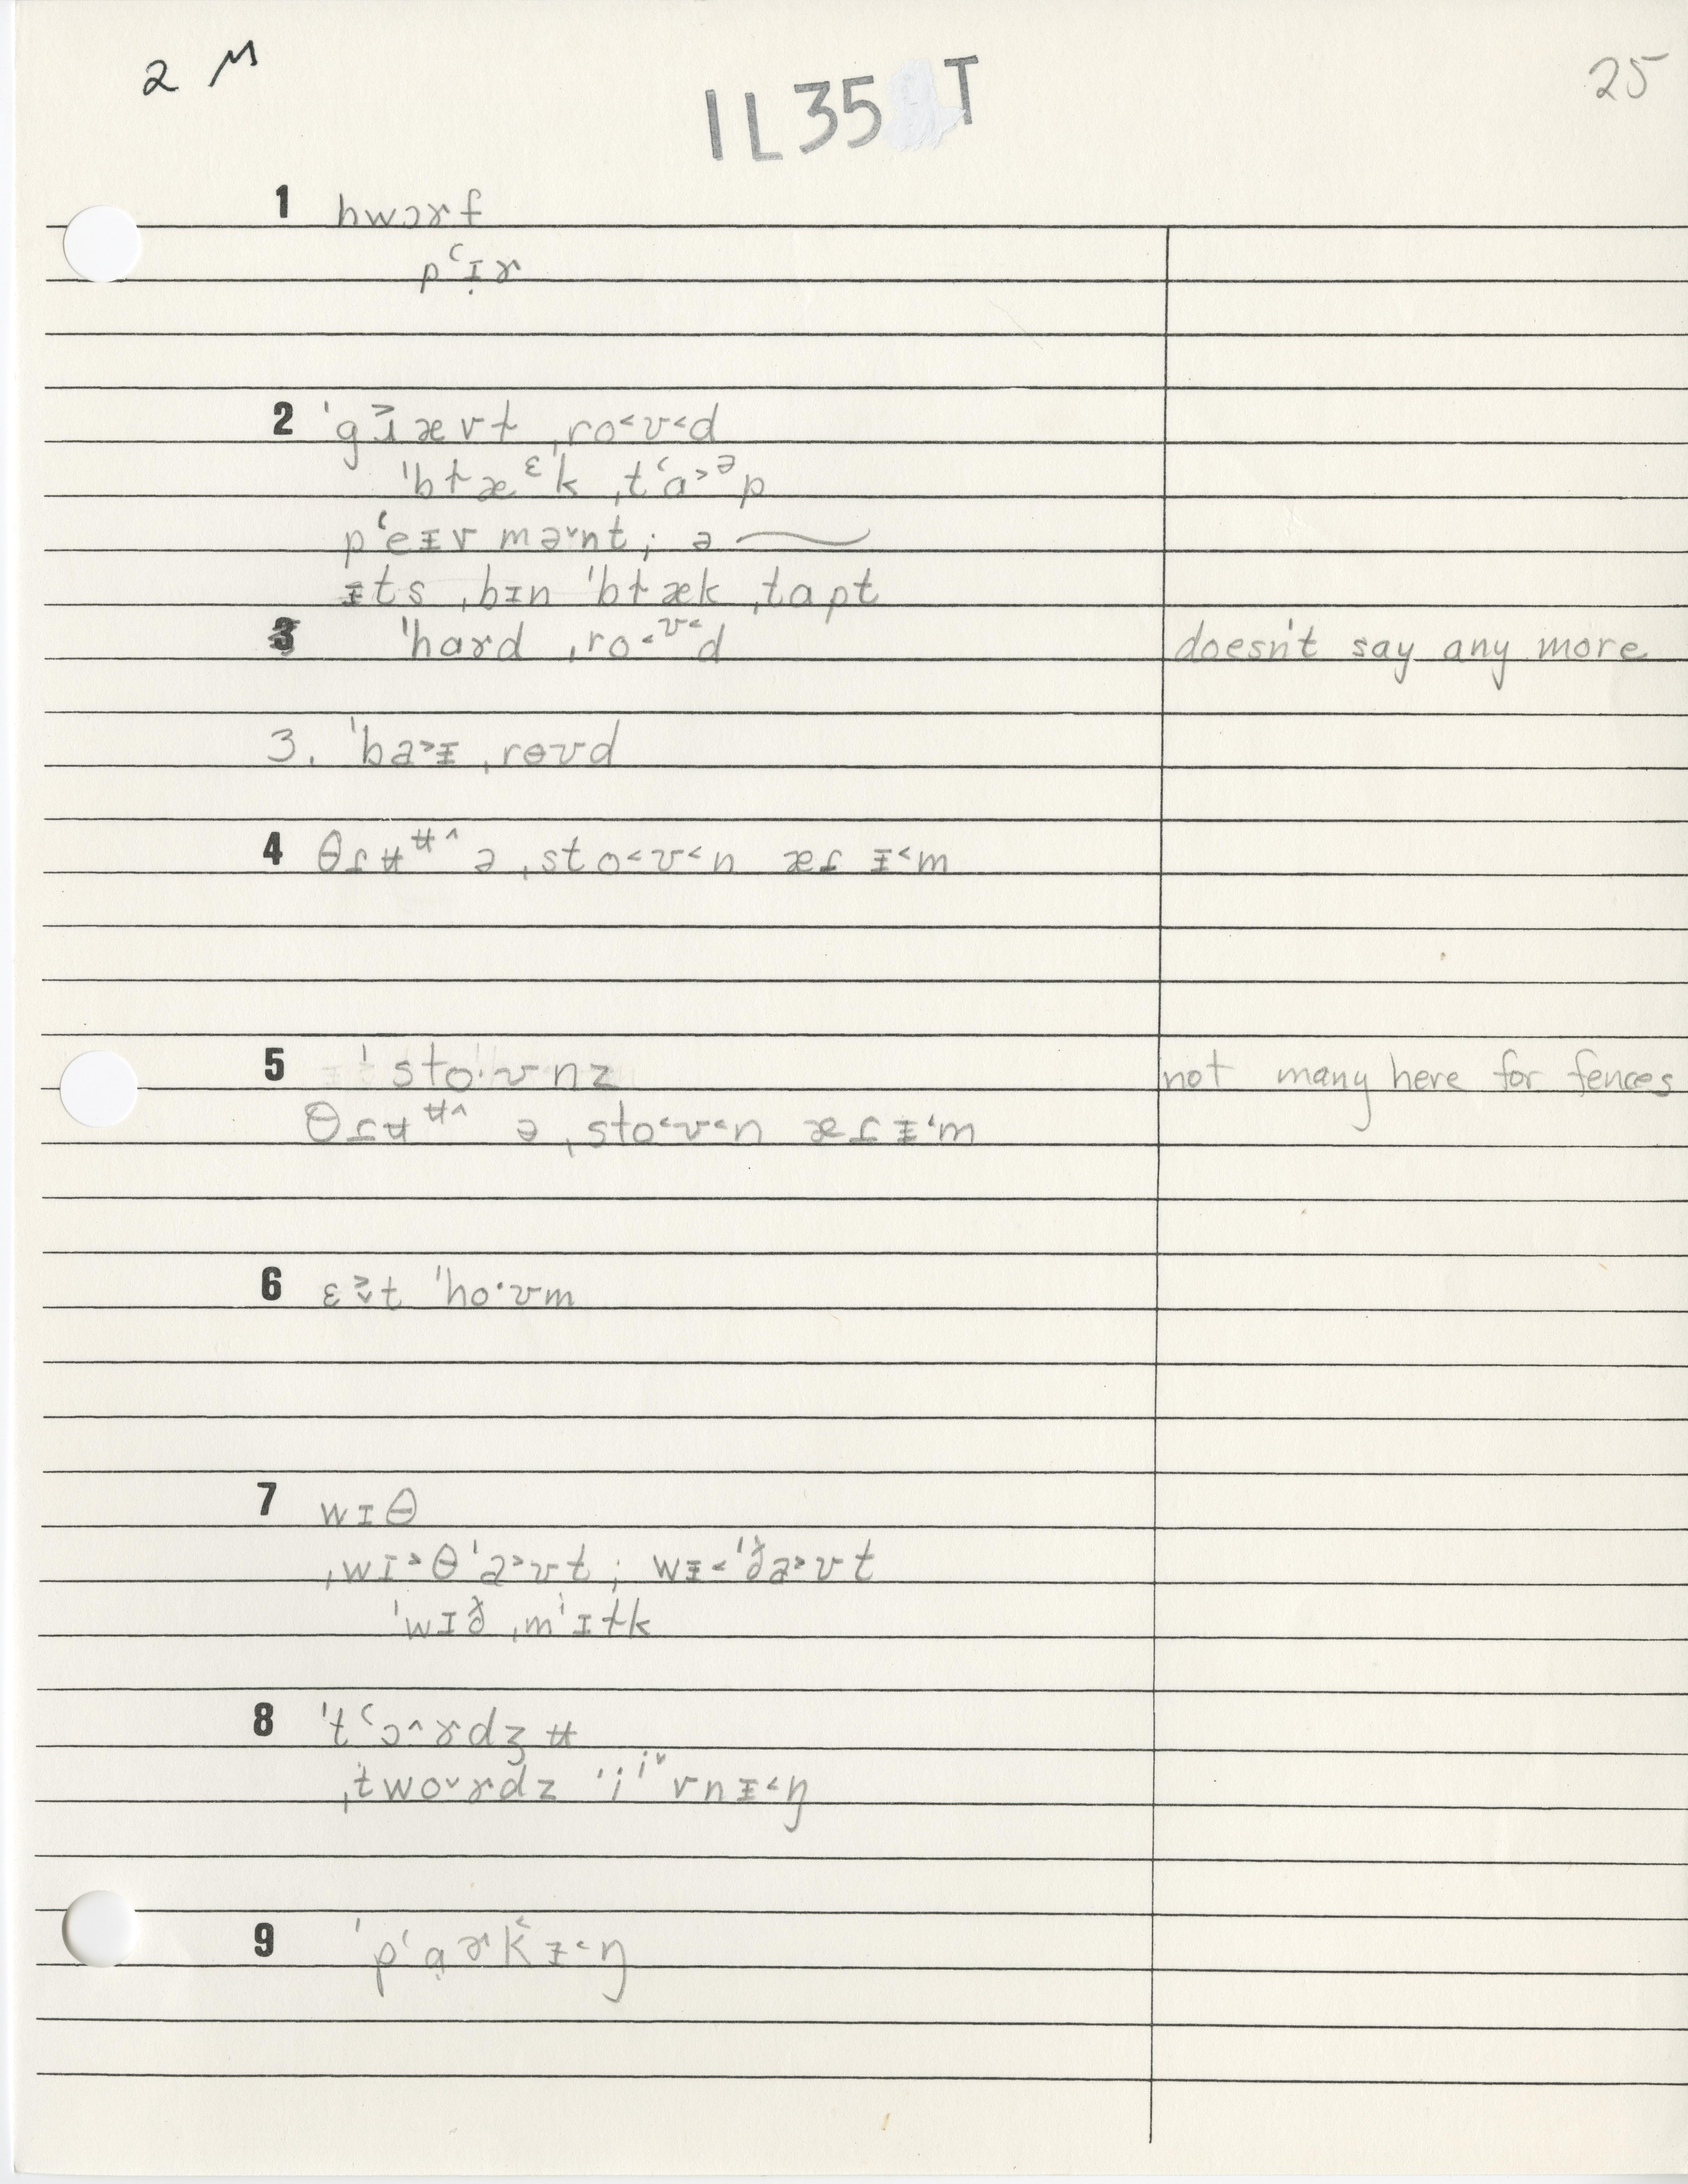 2 M
IL35 T
25
1 hwɔɤf
pʿɪ̣ɤ
2 ˈgɹ̌ævɫ ˌro˂ʊ˂d
ˈbɫæᵋk ˌtʿɑ˃ᵊp
pʿeɪv mə˅nt; ə
ɪts ˌbɪn ˈbɫæk ˌtɑpt
3 ˈhɑɤd ˌro˂ʊ˂d
doesn't say any more
3. ˈba˃ᵻ ˌrɵʊd
4 θɾʉʉ˄ ə ˌsto˂ʊ˂n æɾ ᵻ˂m
5 ˈstoˑʊnz
not many here for fences
θɾʉʉ˄ ə ˌsto˂ʊ˂n æɾ ᵻ˂m
6 ɛt ˈhoˑʊm
7 wɪθ
ˌwɪ˃θˈa˃ʊt; wᵻ˂ˈð̬a˃ʊt
ˈwɪð̬ ˌmˈɪɫk
8 ˈtʿɔ˄ɤdʒ ʉ
ˌtwo˅ɤdz ˈiⁱ˅vnᵻ˂ŋ
9 ˈpʿɑ̣ɤk̂ᵻ˂ŋ